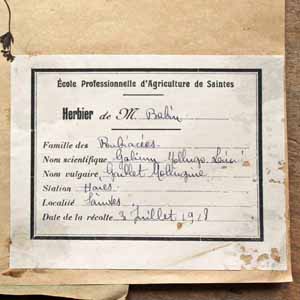 École Professionnelle d'Agriculture de Saintes
Herbier de M. Babin
Famille des Rubiacées
Nom scientifique Galium Mollugo
Nom vulgaire Gaillet Mollugine
Station Haies
Localité Saintes
Date de la récolte 3 Juillet 1918